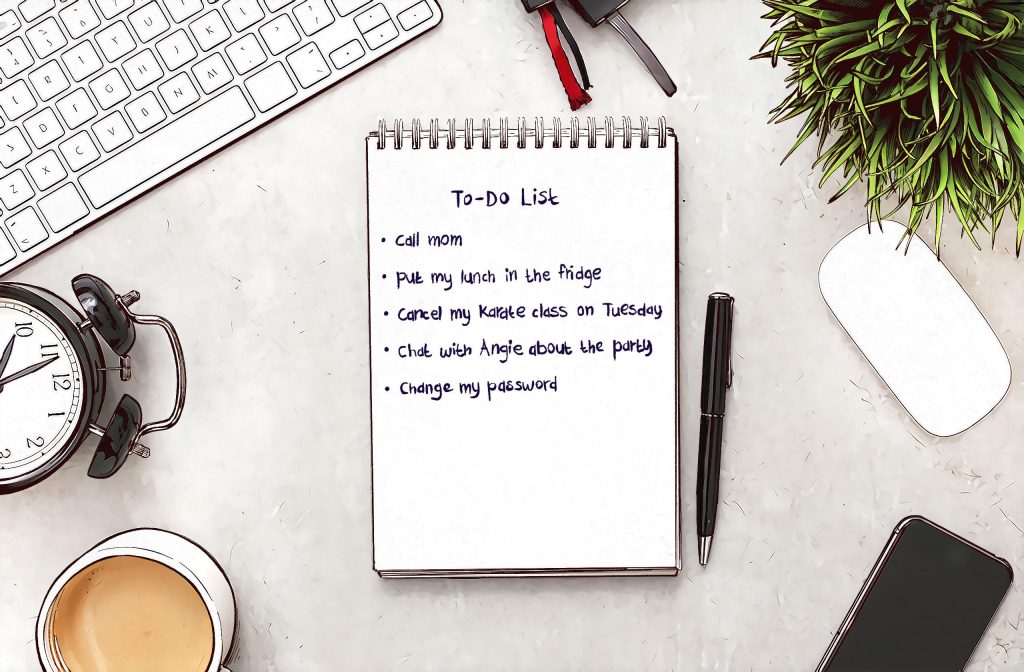 To-Do List
• Call mom
• Put my lunch in the fridge
• Cancel my Karate class on Tuesday
• Chat with Angie about the party
• Change my password
10
11
12
1
2